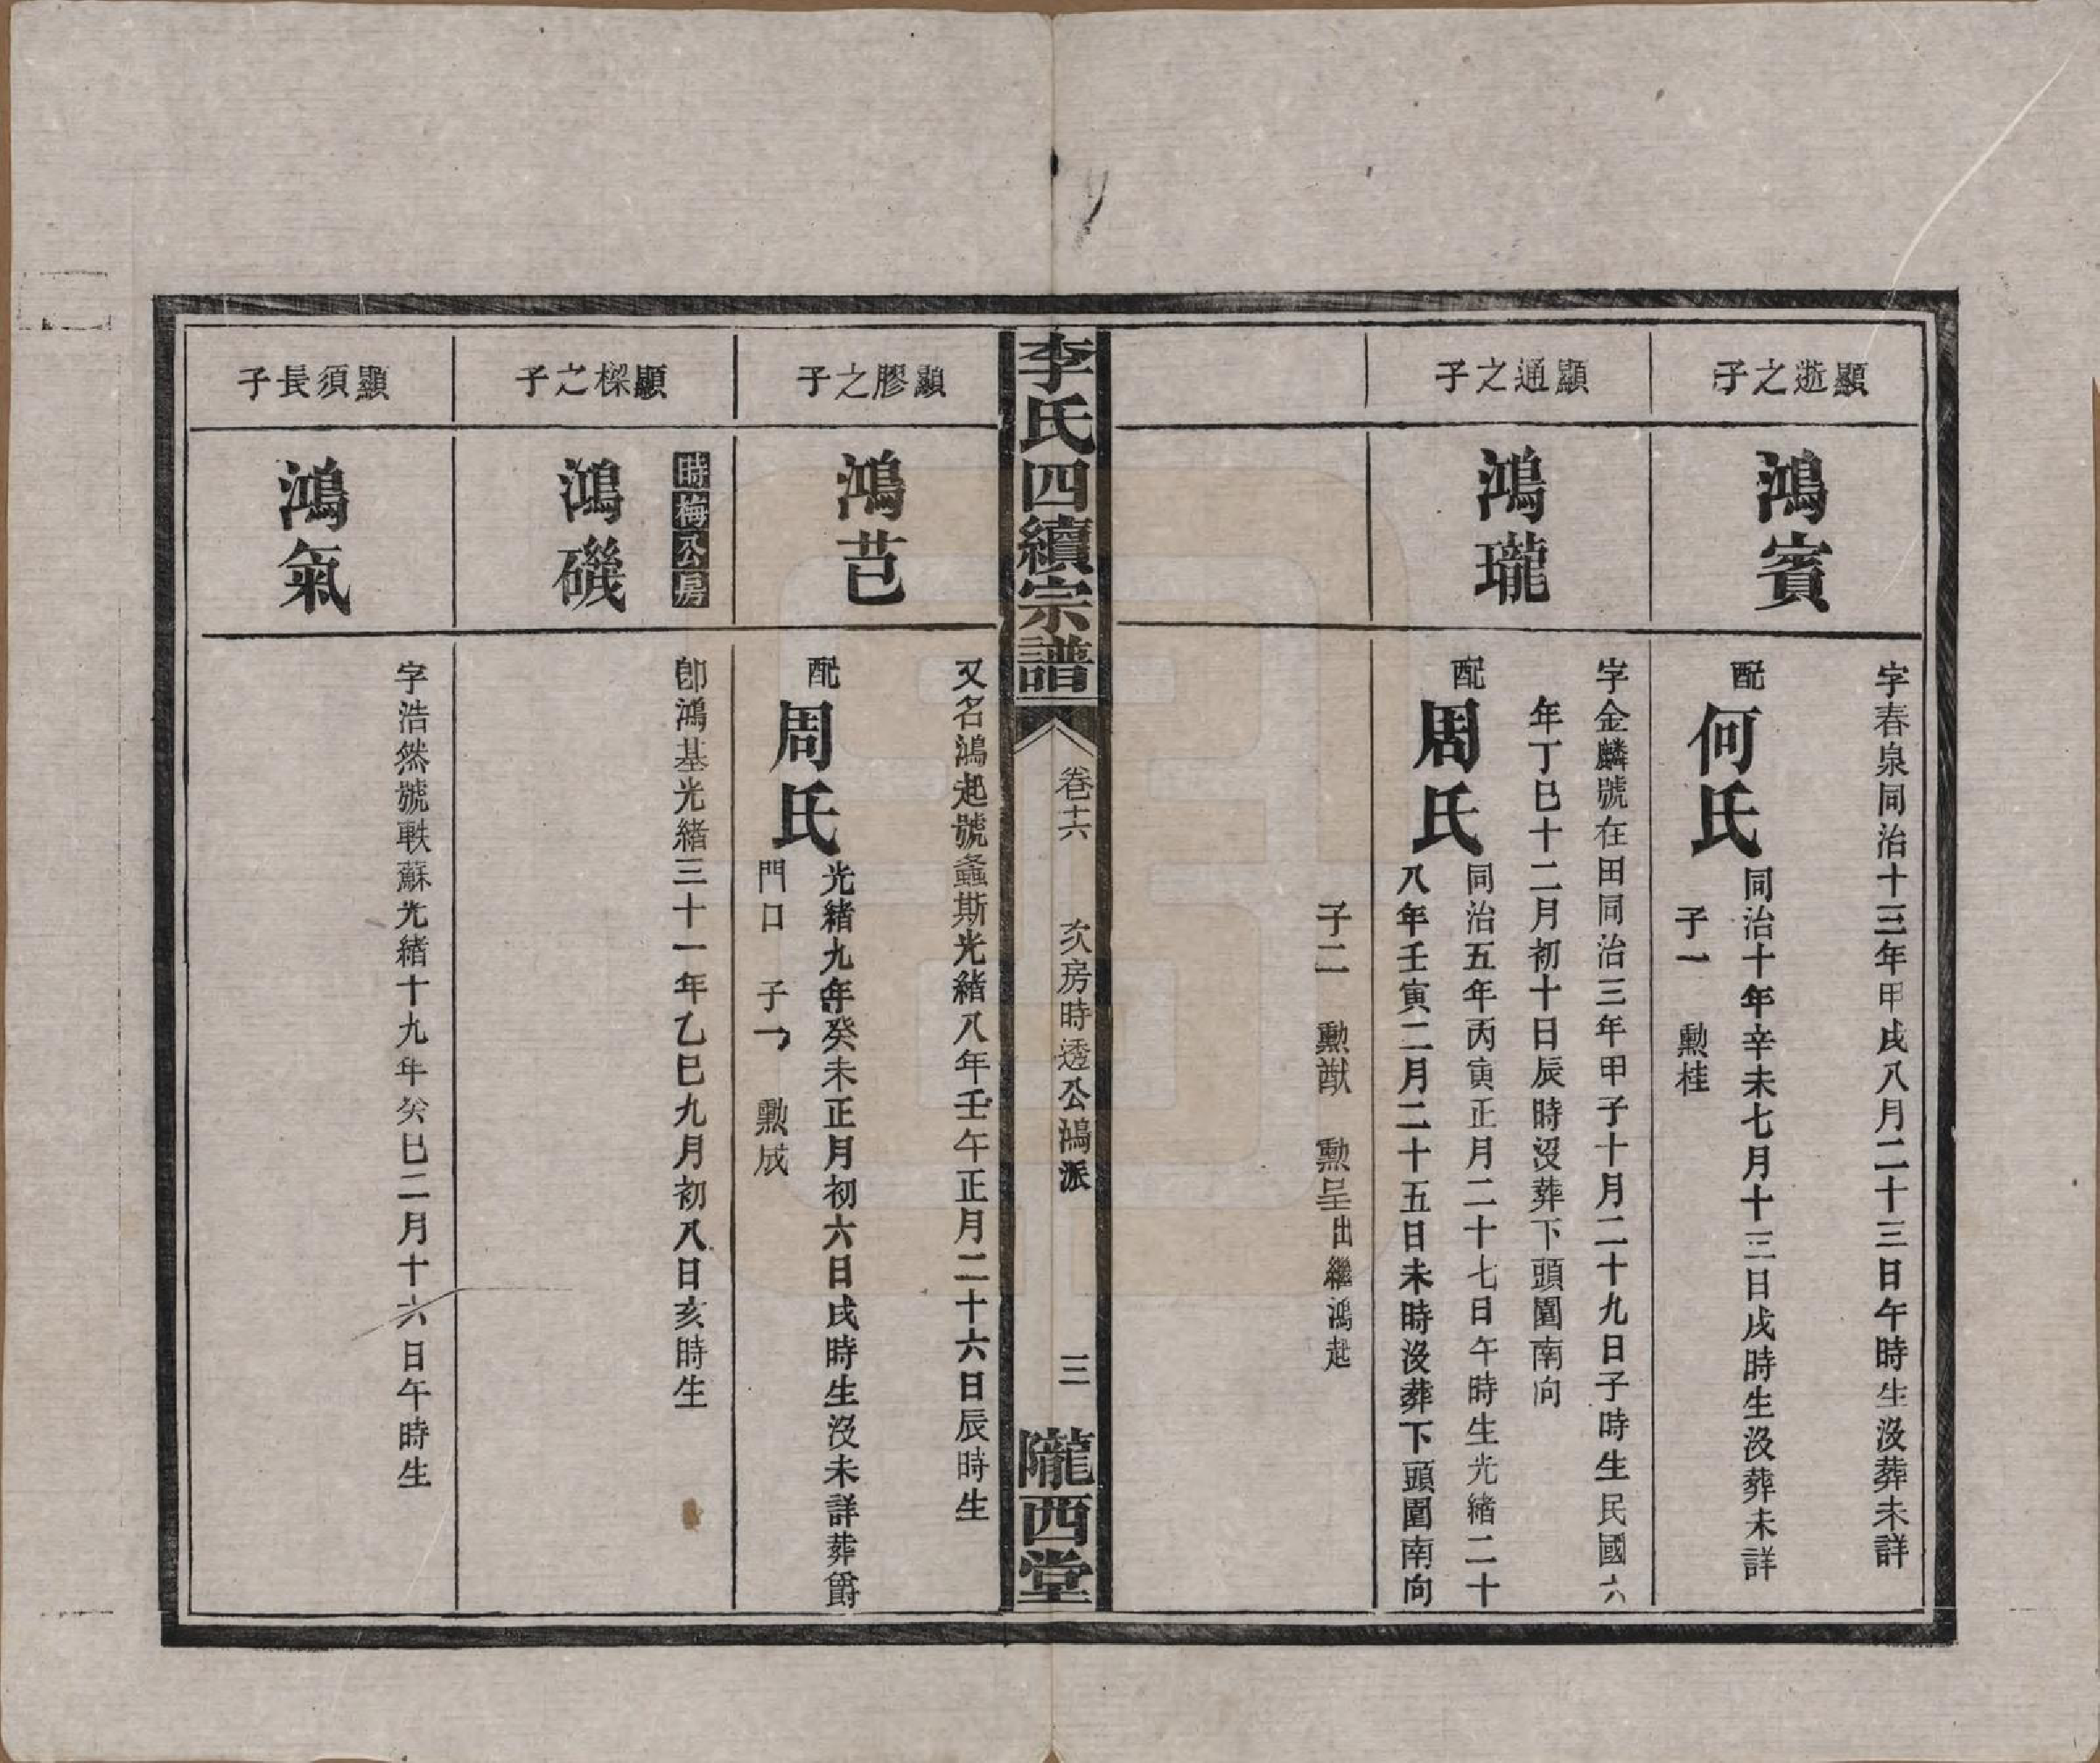 顯逝之子
鴻賓
字春泉同治十三年甲戌八月二十三日午時生沒葬未詳
配何氏同治十年辛未七月十三日戌時生沒葬未詳
子一　勲桂
顯通之子
鴻瓏
字金麟號在田同治三年甲子十月二十九日子時生民國六
年丁巳十二月初十日辰時沒葬下頭圍南向
配周氏同治五年丙寅正月二十七日午時生光緒二十
八年壬寅二月二十五日未時沒葬下頭圍南向
子二　勲猷　勲呈出繼鴻起
李氏四續宗譜
卷十六
次房時透公鴻派
三
隴西堂
顯膠之子
鴻芑
又名鴻起號螽斯光緒八年壬午正月二十六日辰時生
配周氏光緒九年癸未正月初六日戌時生沒未詳葬爵
門口　子一　勲成
時梅公房
顯樑之子
鴻磯
卽鴻基光緒三十一年乙巳九月初八日亥時生
顯須長子
鴻氣
字浩然號軼蘇光緒十九年癸巳二月十六日午時生